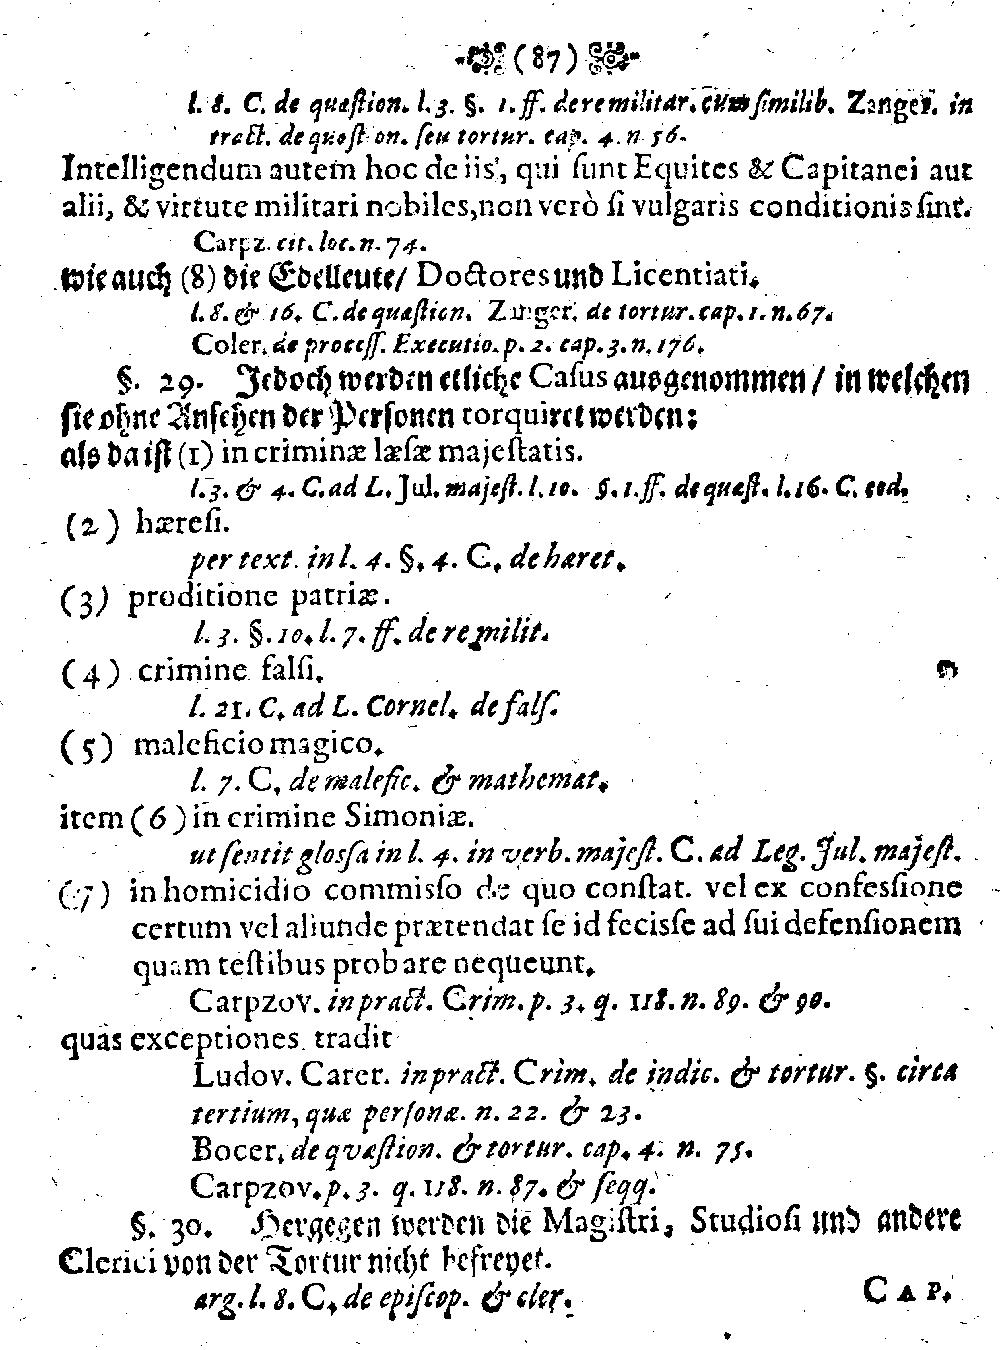 (87)
l. 8. C. de quæstion. l. 3. §. 1. ff. de re militar. cum similib. Zanger. in
tract. de quæst on. seu tortur. cap. 4. n 56.
Intelligendum autem hoc de iis, qui ſunt Equites & Capitanei aut
alii, & virtute militari nobiles, non verò ſi vulgaris conditionis ſint.
Carpz. cit. loc. n. 74.
wie auch (8) die Edelleute/ Doctores und Licentiati.
l. 8. & 16. C. de quæſtion. Zanger. de tortur. cap. 1. n. 67.
Coler. de proceſſ. Executio. p. 2. cap. 3. n. 176.
§. 29. Jedoch werden etliche Caſus ausgenommen / in welchen
ſie ohne Anſehen der Perſonen torquiret werden:
als da iſt (1) in criminæ læſæ majeſtatis.
l. 3. & 4. C. ad L. Jul. majeſt. l. 10. §. 1. ff. de quæſt. l. 16. C. eod.
(2) hæreſi.
per text. in l. 4. §. 4. C. de hæret.
(3) proditione patriæ.
l. 3. §. 10. l. 7. ff. de re milit.
(4) crimine falſi.
l. 21. C. ad L. Cornel. de falſ.
(5) maleficio magico.
l. 7. C. de malefic. & mathemat.
item (6) in crimine Simoniæ.
ut ſentit gloſſa in l. 4. in verb. majeſt. C. ad Leg. Jul. majeſt.
(7) in homicidio commiſſo de quo conſtat. vel ex confeſſione
certum vel aliunde prætendat ſe id feciſſe ad ſui defenſionem
quam teſtibus probare nequeunt.
Carpzov. in pract. Crim. p. 3. q. 118. n. 89. & 90.
quas exceptiones tradit
Ludov. Carer. in pract. Crim. de indic. & tortur. §. circa
tertium, quæ perſonæ. n. 22. & 23.
Bocer. de qvæſtion. & tortur. cap. 4. n. 75.
Carpzov. p. 3. q. 118. n. 87. & ſeqq.
§. 30. Hergegen werden die Magiſtri, Studioſi und andere
Clerici von der Tortur nicht befreyet.
arg. l. 8. C. de epiſcop. & cler.
CAP.